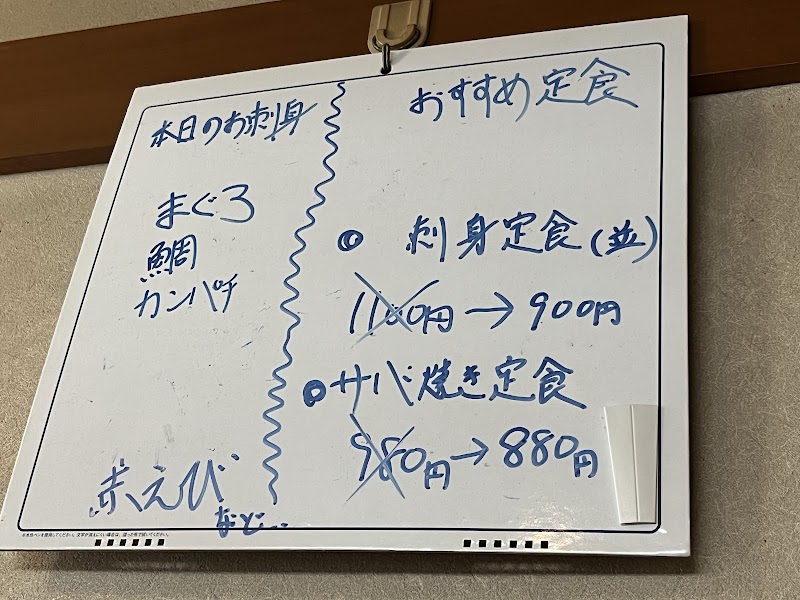 本日のお刺身
まぐろ
鯛
カンパチ
赤えび
など...
おすすめ定食
◎ 刺身定食(並)
1180円→900円
◎サバ焼き定食
980円→880円